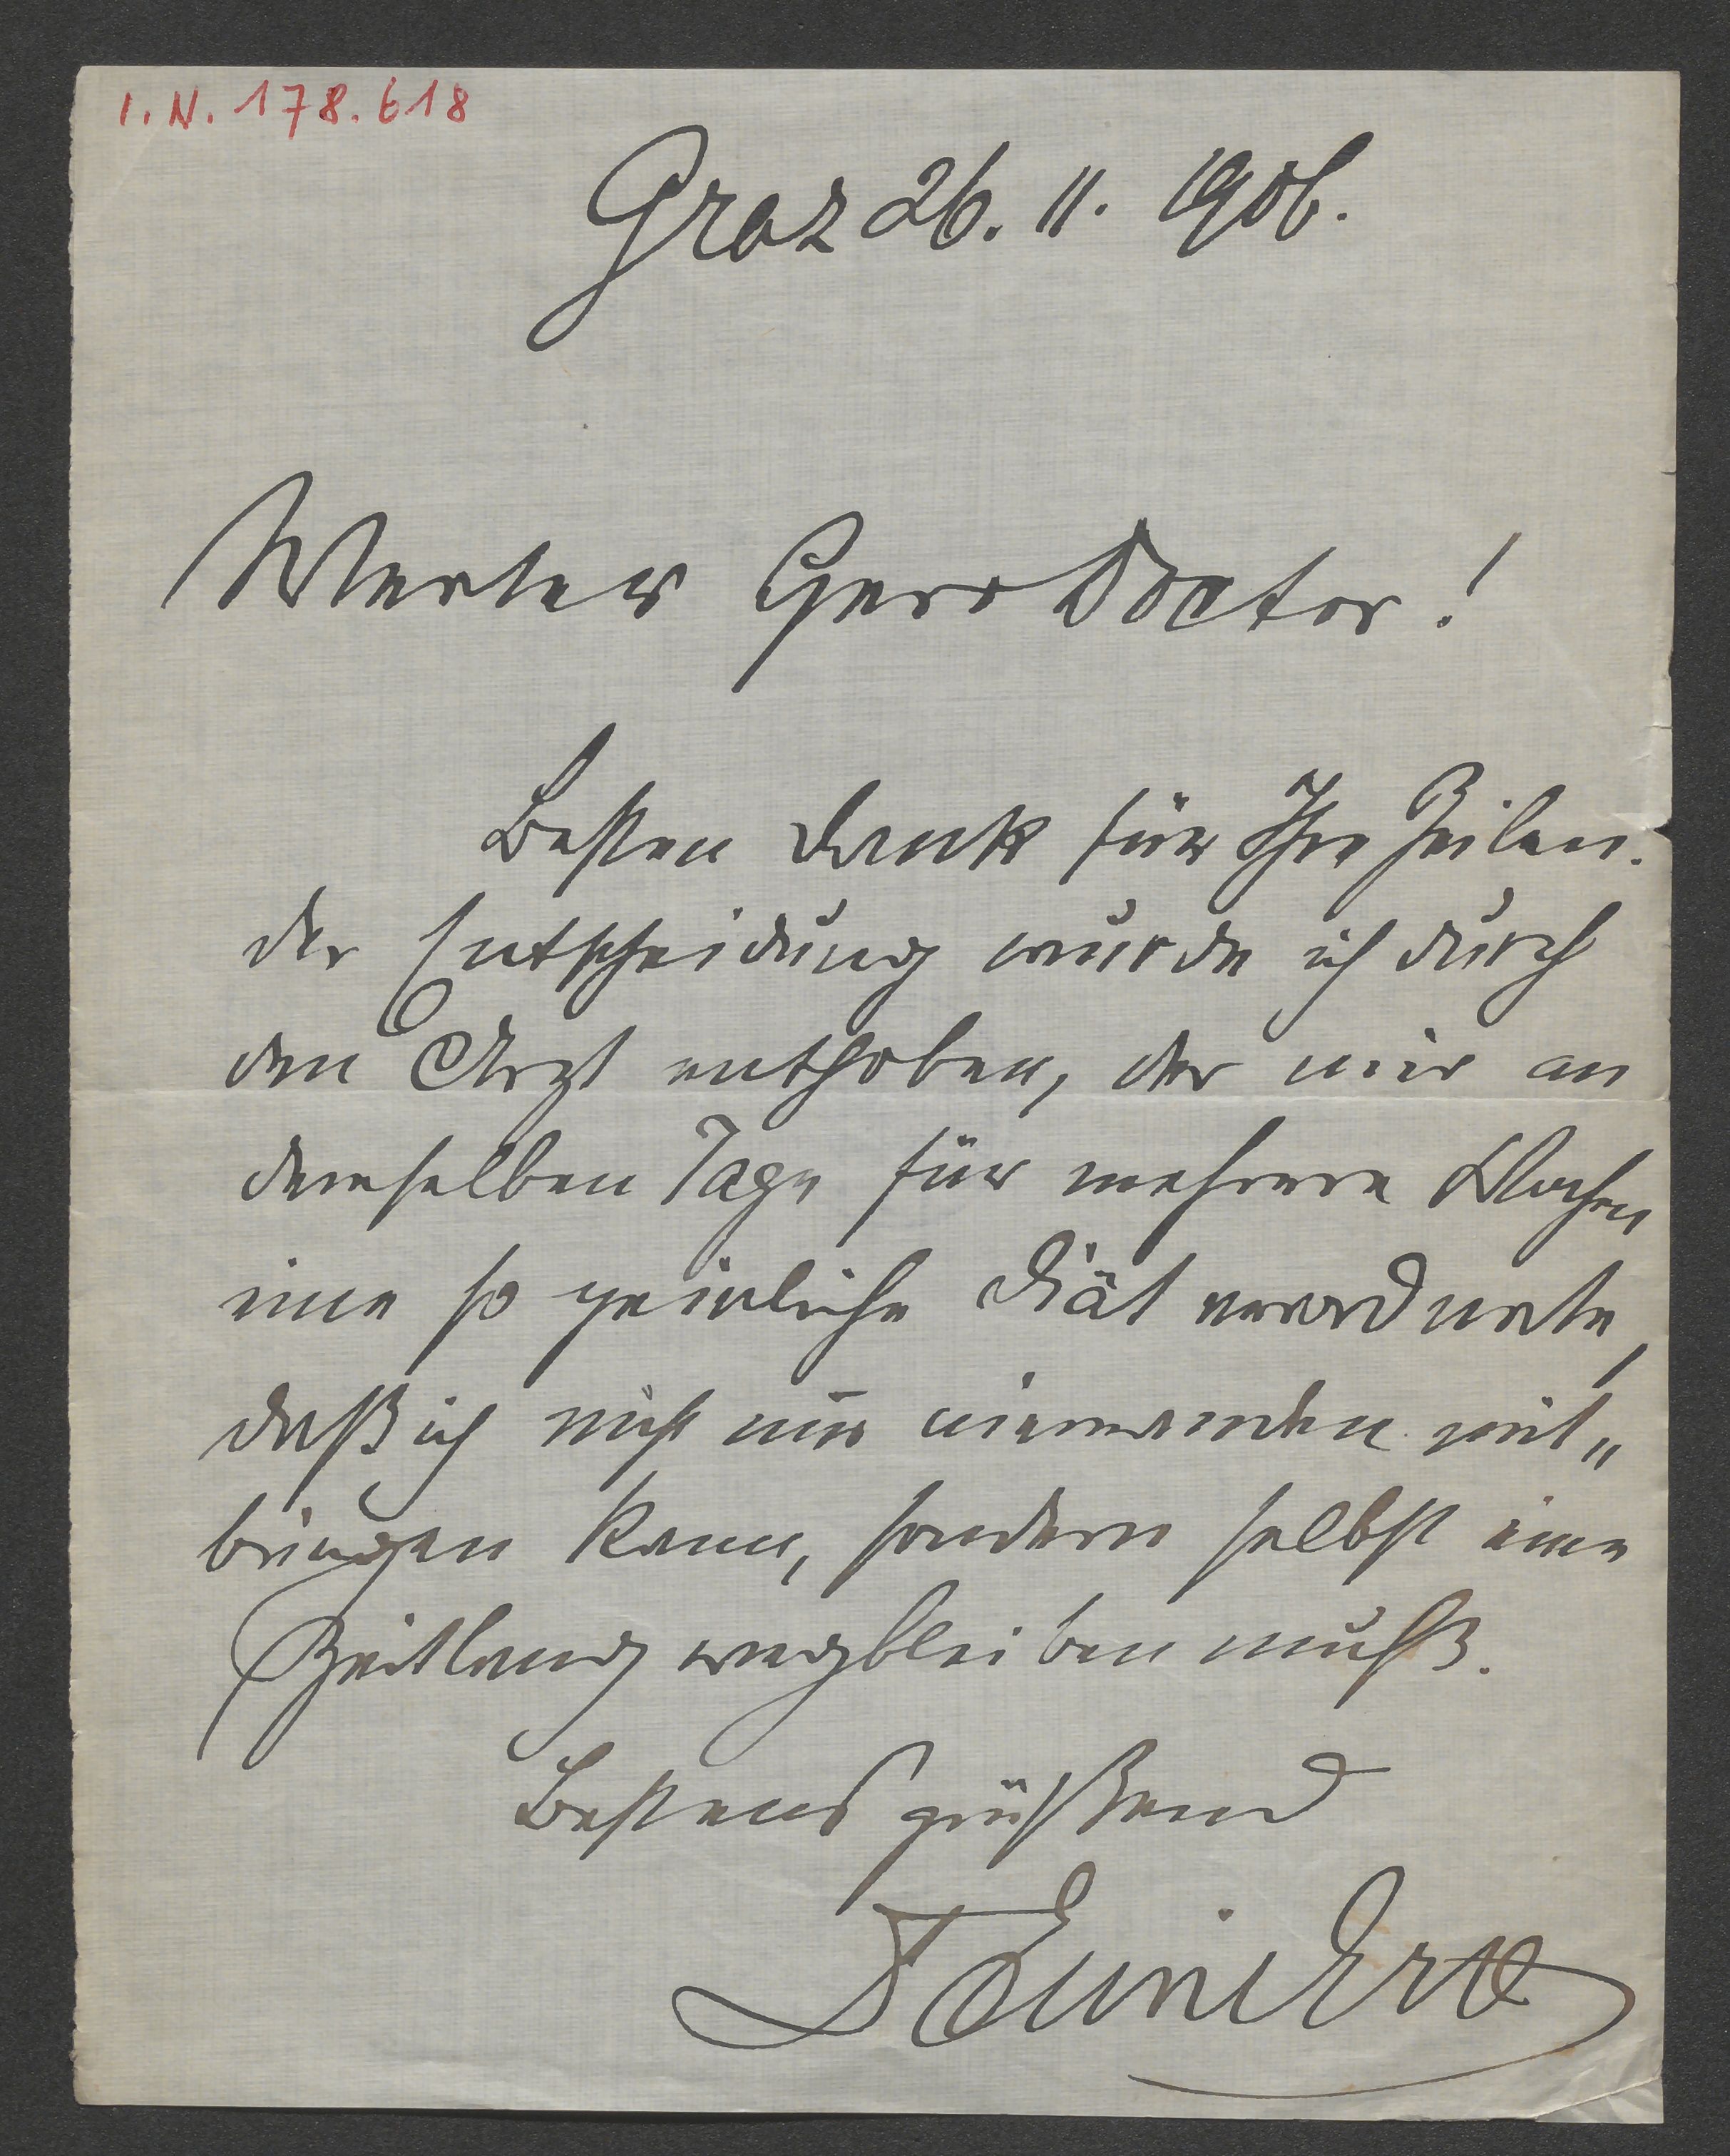 I. N. 178.618
Graz 26. 11. 1906.
Werter Herr Doctor!
Besten Dank für Ihre Zeilen.
Der Entscheidung wurde ich durch
den Arzt enthoben, der mir an
demselben Tage für mehrere Wochen
eine so peinliche Diät verordnete,
daß ich nicht nur niemanden mit„
bringen kann, sondern selbst eine
Zeitlang wegbleiben muß.
Bestens grüßend
Emil Ertl